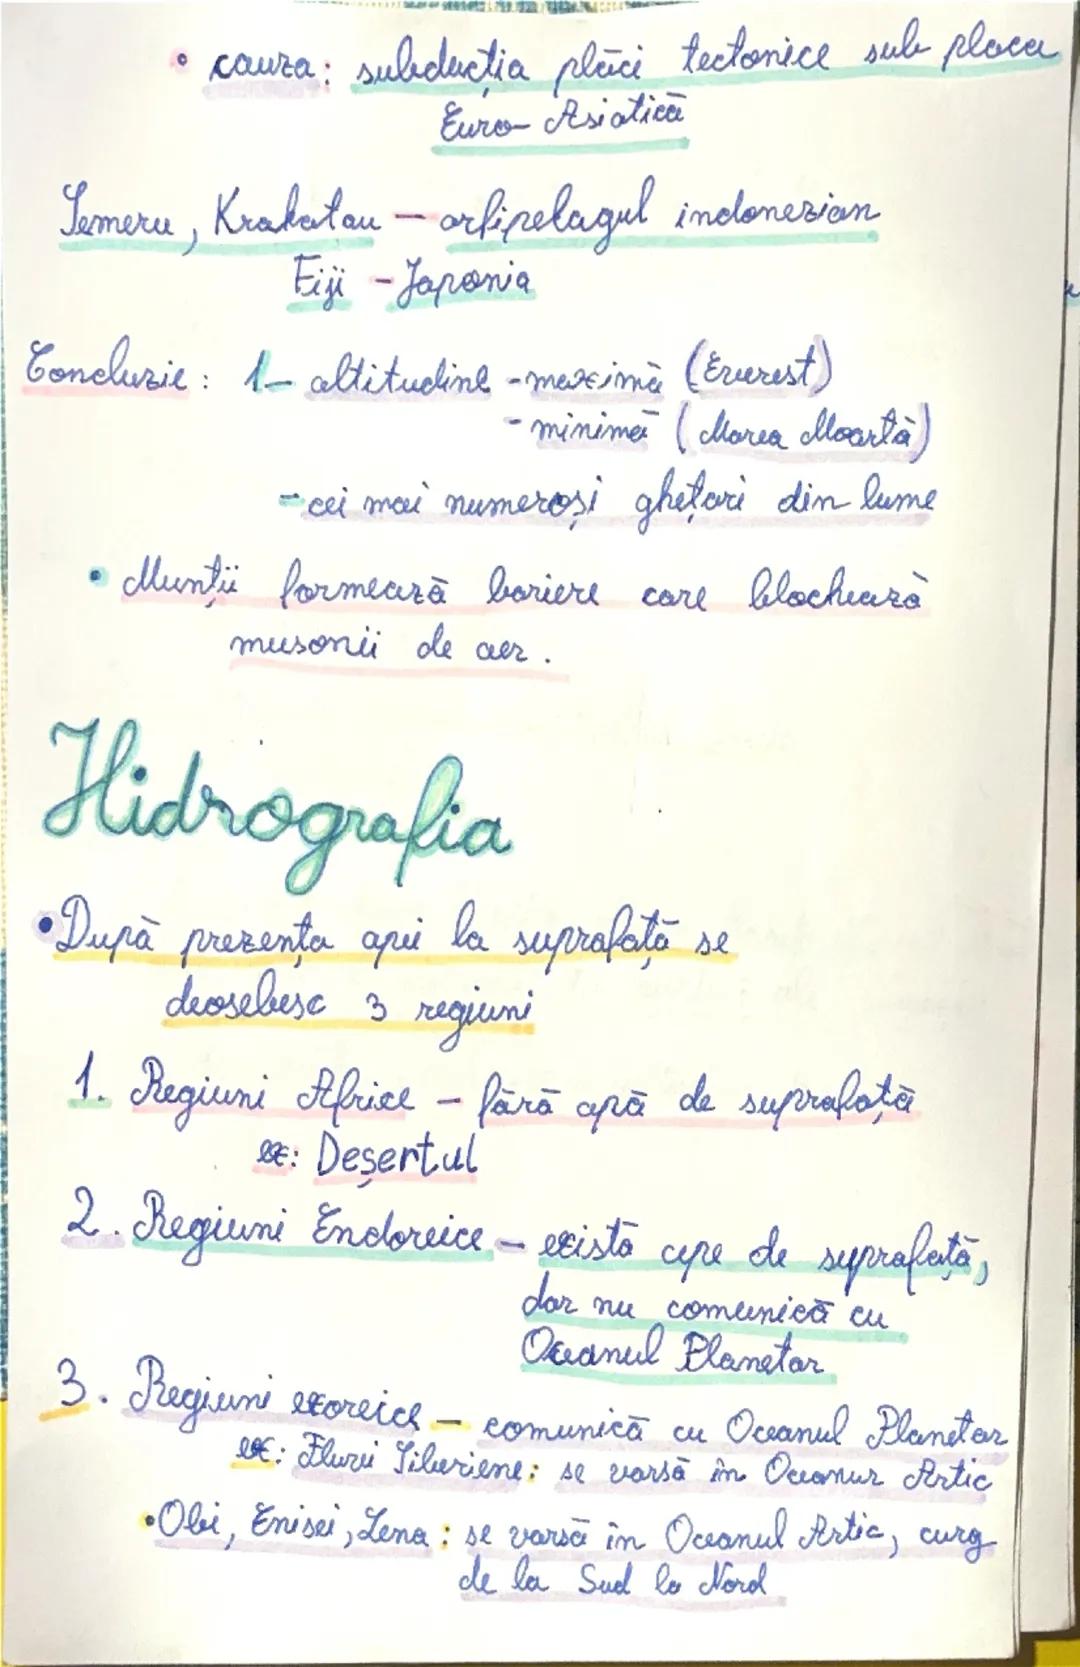 • cauza: subducția plăci tectonice sub placa
Euro-Asiatică
Semeru, Krakatau – arhipelagul indonezian
Fiji – Japonia
Concluzie: 1– altitudine - maximă (Everest)
- minimă (Marea Moartă)
- cei mai numeroși ghețari din lume
• Munții formează bariere care blochează
musonii de aer.
Hidrografia
• După prezența apei la suprafață se
deosebesc 3 regiuni
1. Regiuni Africe – fără apă de suprafață
ex: Deșertul
2. Regiuni Endoreice – există ape de suprafață,
dar nu comunică cu
Oceanul Planetar
3. Regiuni exoreice – comunică cu Oceanul Planetar
ex: Fluvii Siberiene: se varsă în Oceanur Artic
• Obi, Enisei, Lena: se varsă în Oceanul Artic, curg
de la Sud la Nord